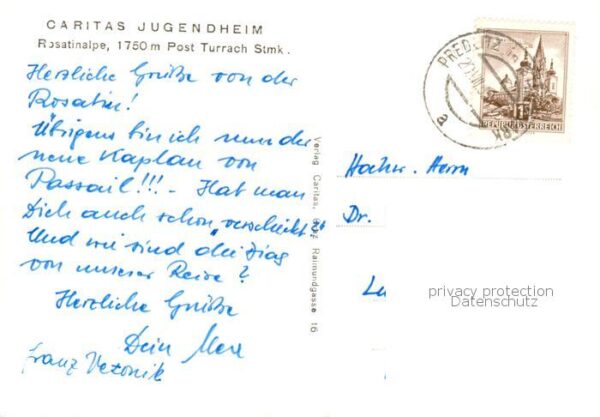 CARITAS JUGENDHEIM
Rosatinalpe, 1750 m Post Turrach Stmk.
Herzliche Grüße von der
Rosatin!
Übrigens bin ich nun der
neue Kaplan von
Passail!!! - Hat man
Dich auch schon "verschickt"?
Und wie sind die Dias
von unserer Reise?
Herzliche Grüße
Dein
Franz
Verlag Caritas, Graz, Raimundgasse 16
PREDLITZ
a
REPUBLIK ÖSTERREICH
Hochw. Herrn
Dr.
privacy protection
Datenschutz